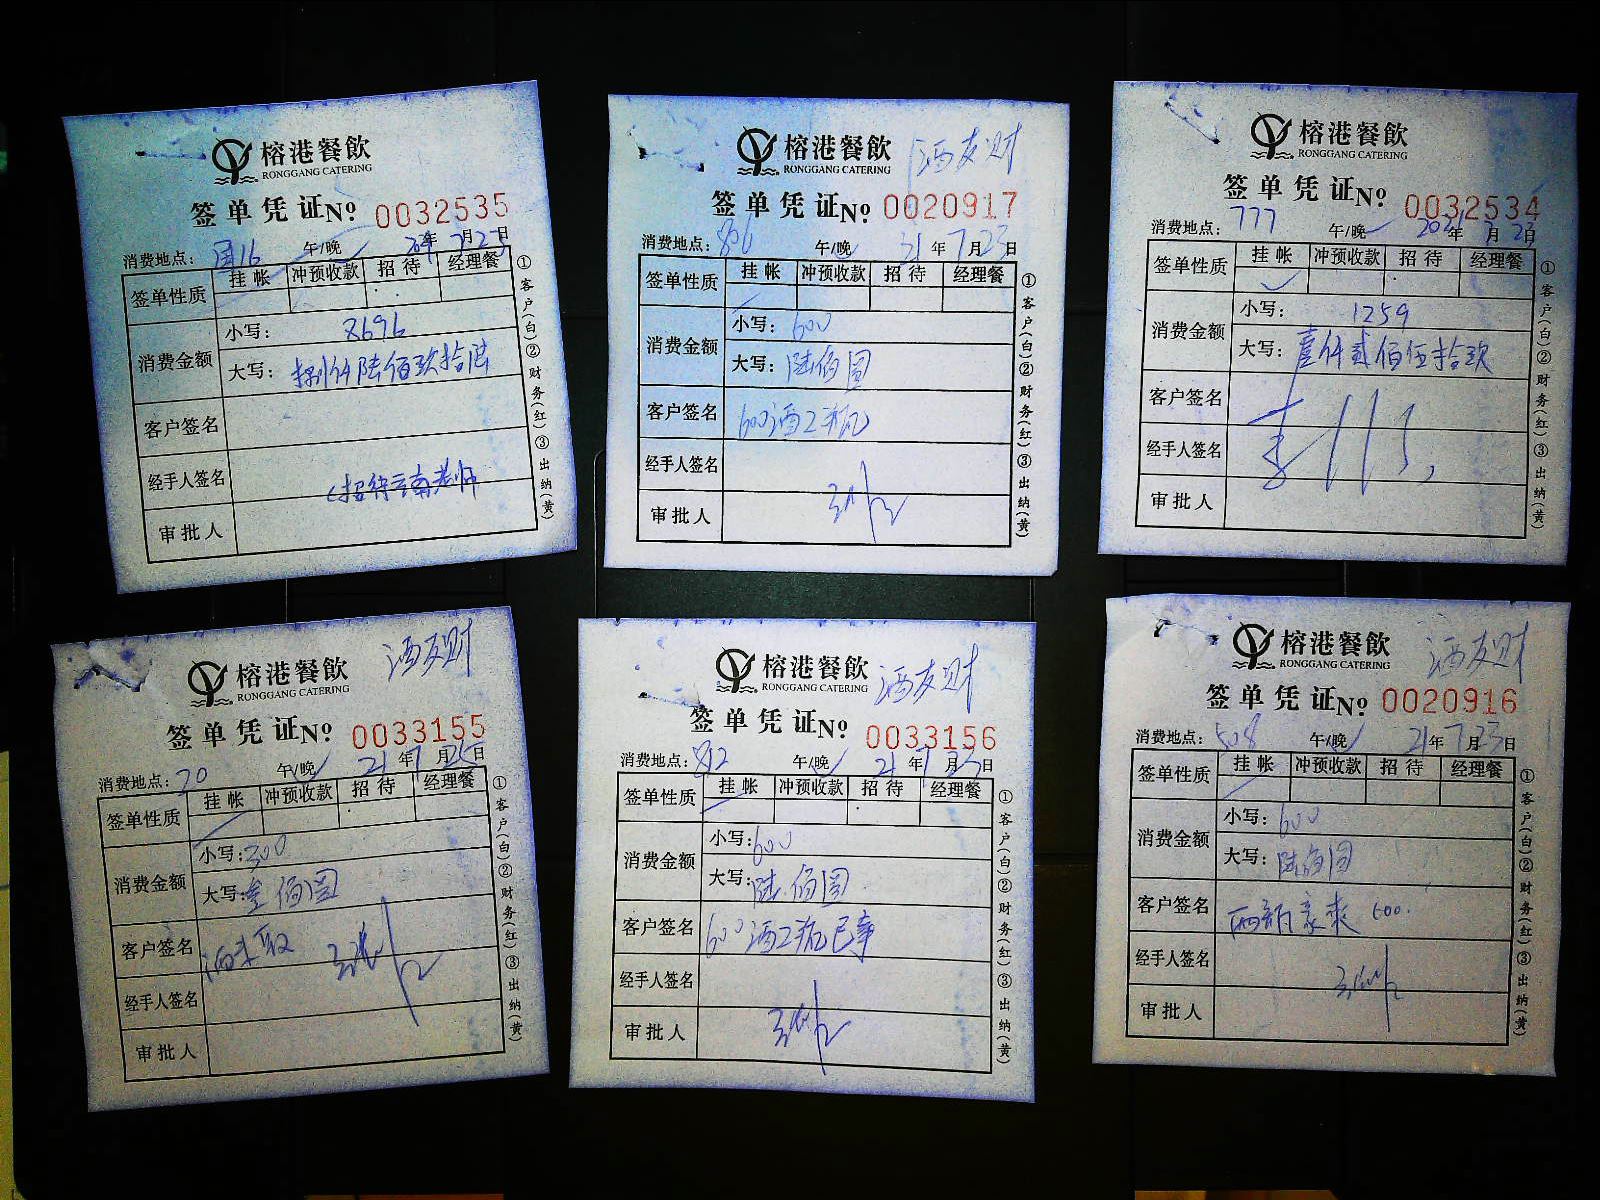 榕港餐飲
RONGGANG CATERING
签单凭证 No 0032535
消费地点: 国16 午/晚 年 7月 日
签单性质 挂帐 冲预收款 招待 经理餐
消费金额 小写: 8696
大写: 捌仟陆佰玖拾陆
客户签名
经手人签名 招待云南老师
审批人
①客户(白)②财务(红)③出纳(黄)
榕港餐飲 酒友财
RONGGANG CATERING
签单凭证 No 0020917
消费地点: 806 午/晚 21年7月23日
签单性质 挂帐 冲预收款 招待 经理餐
消费金额 小写: 600
大写: 陆佰圆
客户签名 600酒2瓶
经手人签名
审批人
①客户(白)②财务(红)③出纳(黄)
榕港餐飲
RONGGANG CATERING
签单凭证 No 0032534
消费地点: 777 午/晚 2021年7月2 日
签单性质 挂帐 冲预收款 招待 经理餐
消费金额 小写: 1259
大写: 壹仟贰佰伍拾玖
客户签名
经手人签名
审批人
①客户(白)②财务(红)③出纳(黄)
榕港餐飲 酒友财
RONGGANG CATERING
签单凭证 No 0033155
消费地点: 70 午/晚 21年7月25日
签单性质 挂帐 冲预收款 招待 经理餐
消费金额 小写: 300
大写: 叁佰圆
客户签名
经手人签名
审批人
①客户(白)②财务(红)③出纳(黄)
榕港餐飲 酒友财
RONGGANG CATERING
签单凭证 No 0033156
消费地点: 812 午/晚 21年7月23日
签单性质 挂帐 冲预收款 招待 经理餐
消费金额 小写: 600
大写: 陆佰圆
客户签名 600酒2瓶已拿
经手人签名
审批人
①客户(白)②财务(红)③出纳(黄)
榕港餐飲 酒友财
RONGGANG CATERING
签单凭证 No 0020916
消费地点: 508 午/晚 21年7月23日
签单性质 挂帐 冲预收款 招待 经理餐
消费金额 小写: 600
大写: 陆佰圆
客户签名 两瓶豪爽 600.
经手人签名
审批人
①客户(白)②财务(红)③出纳(黄)